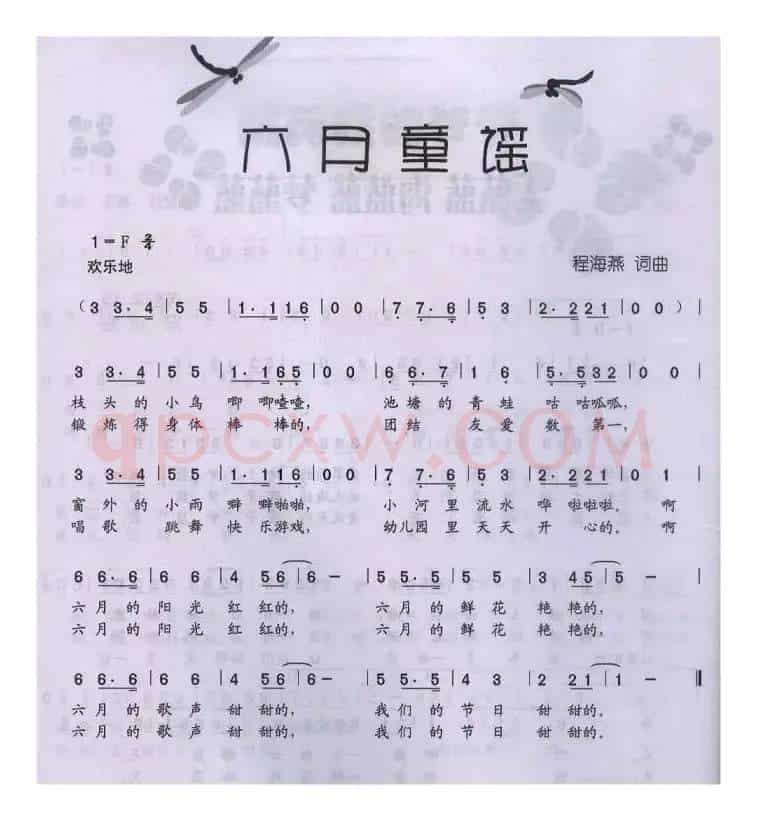 六月童谣
1=F 2/4
欢乐地
程海燕 词曲
(3 3·4 | 5 5 | 1·1 1 6 | 0 0 | 7 7·6 | 5 3 | 2·2 2 1 | 0 0 ) |
3 3·4 | 5 5 | 1·1 6 5 | 0 0 | 6 6·7 | 1 6 | 5·5 3 2 | 0 0 |
枝头的小鸟 唧唧喳喳, 池塘的青蛙 咕咕呱呱,
锻炼得身体棒棒的, 团结友爱数第一,
3 3·4 | 5 5 | 1·1 1 6 | 0 0 | 7 7·6 | 5 3 | 2·2 2 1 | 0 1 |
窗外的小雨 噼噼啪啪, 小河里流水哗啦啦。 啊
唱歌跳舞快乐游戏, 幼儿园里天天开心的。 啊
6 6·6 | 6 6 | 4 5 6 | 6 - | 5 5·5 | 5 5 | 3 4 5 | 5 - |
六月的阳光红红的, 六月的鲜花艳艳的,
六月的阳光红红的, 六月的鲜花艳艳的,
6 6·6 | 6 6 | 4 5 6 | 6 - | 5 5·5 | 4 3 | 2 2 1 | 1 - ‖
六月的歌声甜甜的, 我们的节日甜甜的。
六月的歌声甜甜的, 我们的节日甜甜的。
qpcxw.com